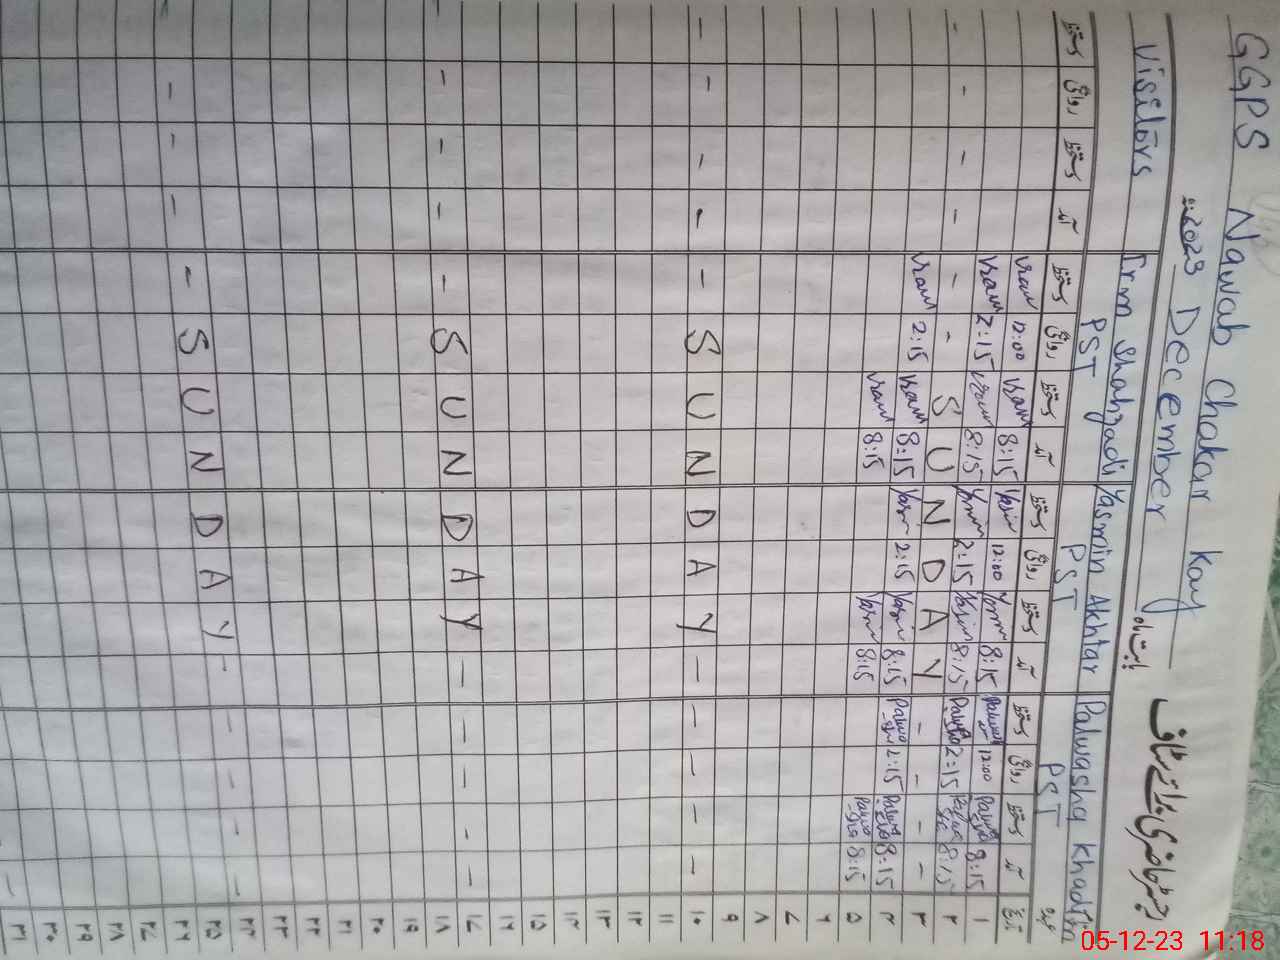 GGPS Nawab Chakar Kay
رجسٹر حاضری برائے سٹاف بابت ماہ December 2023ء
Palwasha Khadim Yasmin Akhtar Irm Shahzadi Visitors
عہدہ PST PST PST
تاریخ آمد دستخط روانگی دستخط آمد دستخط روانگی دستخط آمد دستخط روانگی دستخط آمد دستخط روانگی دستخط
۱ 8:15 12:00 8:15 Yasmin 12:00 Yasmin 8:15 Iram 12:00 Iram
۲ 8:15 2:15 8:15 Yasmin 2:15 Yasmin 8:15 Iram 2:15 Iram
۳ - - - - S U N D A Y - - - - - -
۴ 8:15 2:15 8:15 Yasmin 2:15 Yasmin 8:15 Iram 2:15 Iram
۵ 8:15 8:15 Yasmin 8:15 Iram
۶
۷
۸
۹
۱۰ - - - - - S U N D A Y - - - - -
۱۱
۱۲
۱۳
۱۴
۱۵
۱۶
۱۷ - - - - - S U N D A Y - - - -
۱۸
۱۹
۲۰
۲۱
۲۲
۲۳
۲۴ - - - - - S U N D A Y - - - -
۲۵
۲۶
۲۷
۲۸
۲۹
۳۰
۳۱
05-12-23 11:18